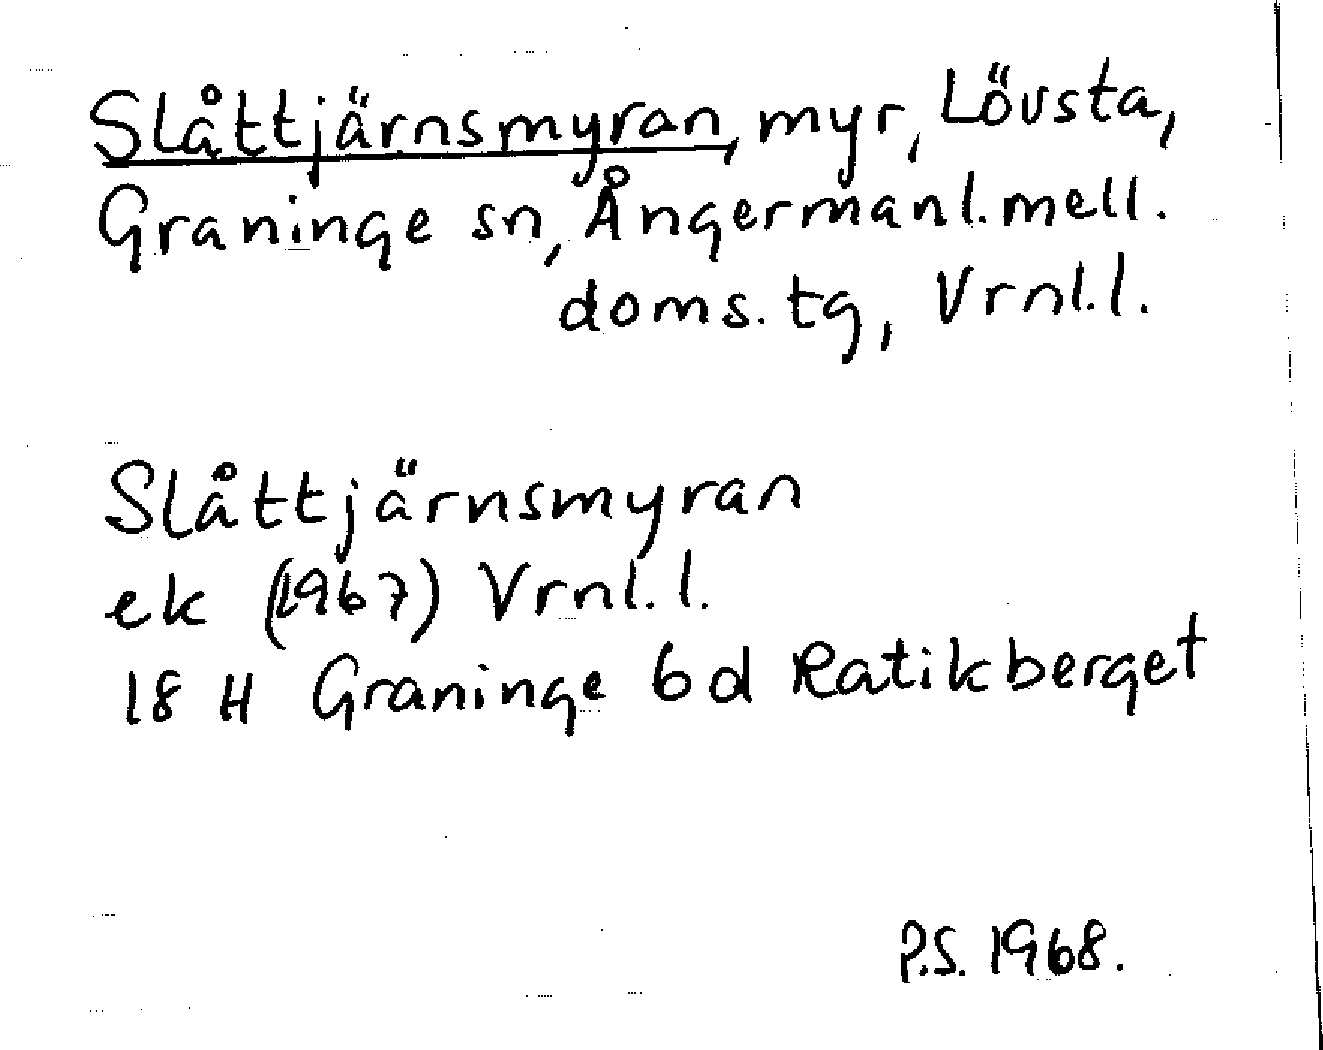 Slåttjärnsmyran, myr, Lövsta,
Graninge sn, Ångermanl. mell.
doms. tg, Vrnl. l.
Slåttjärnsmyran
ek (1967) Vrnl. l.
18 H Graninge 6d Ratikberget
P.S. 1968.